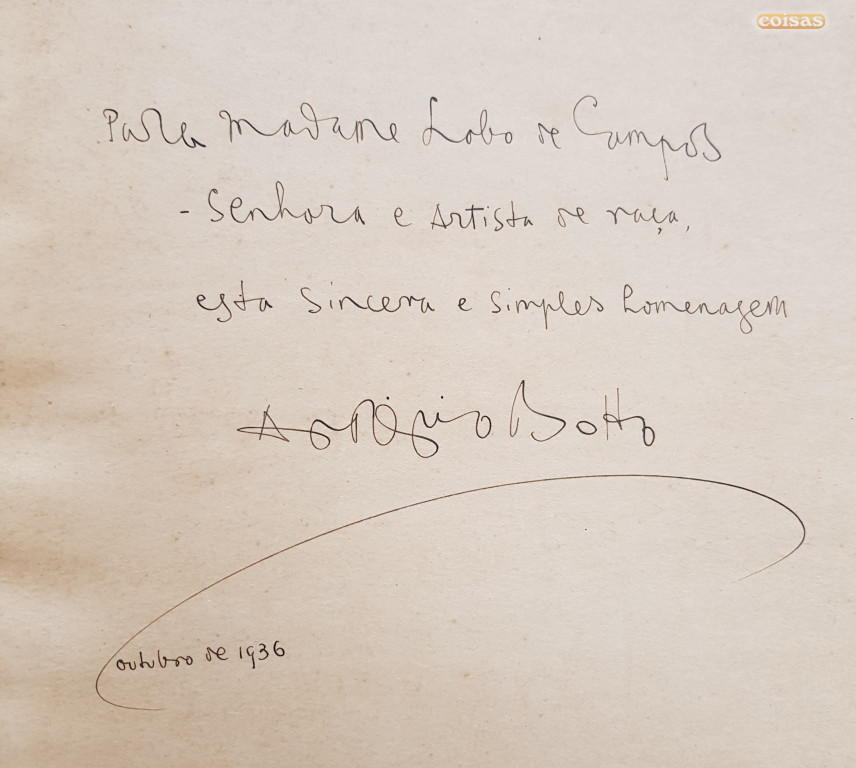 coisas
Para Madame Lobo de Campos
- Senhora e Artista de raça,
esta sincera e simples homenagem
António Botto
outubro de 1936